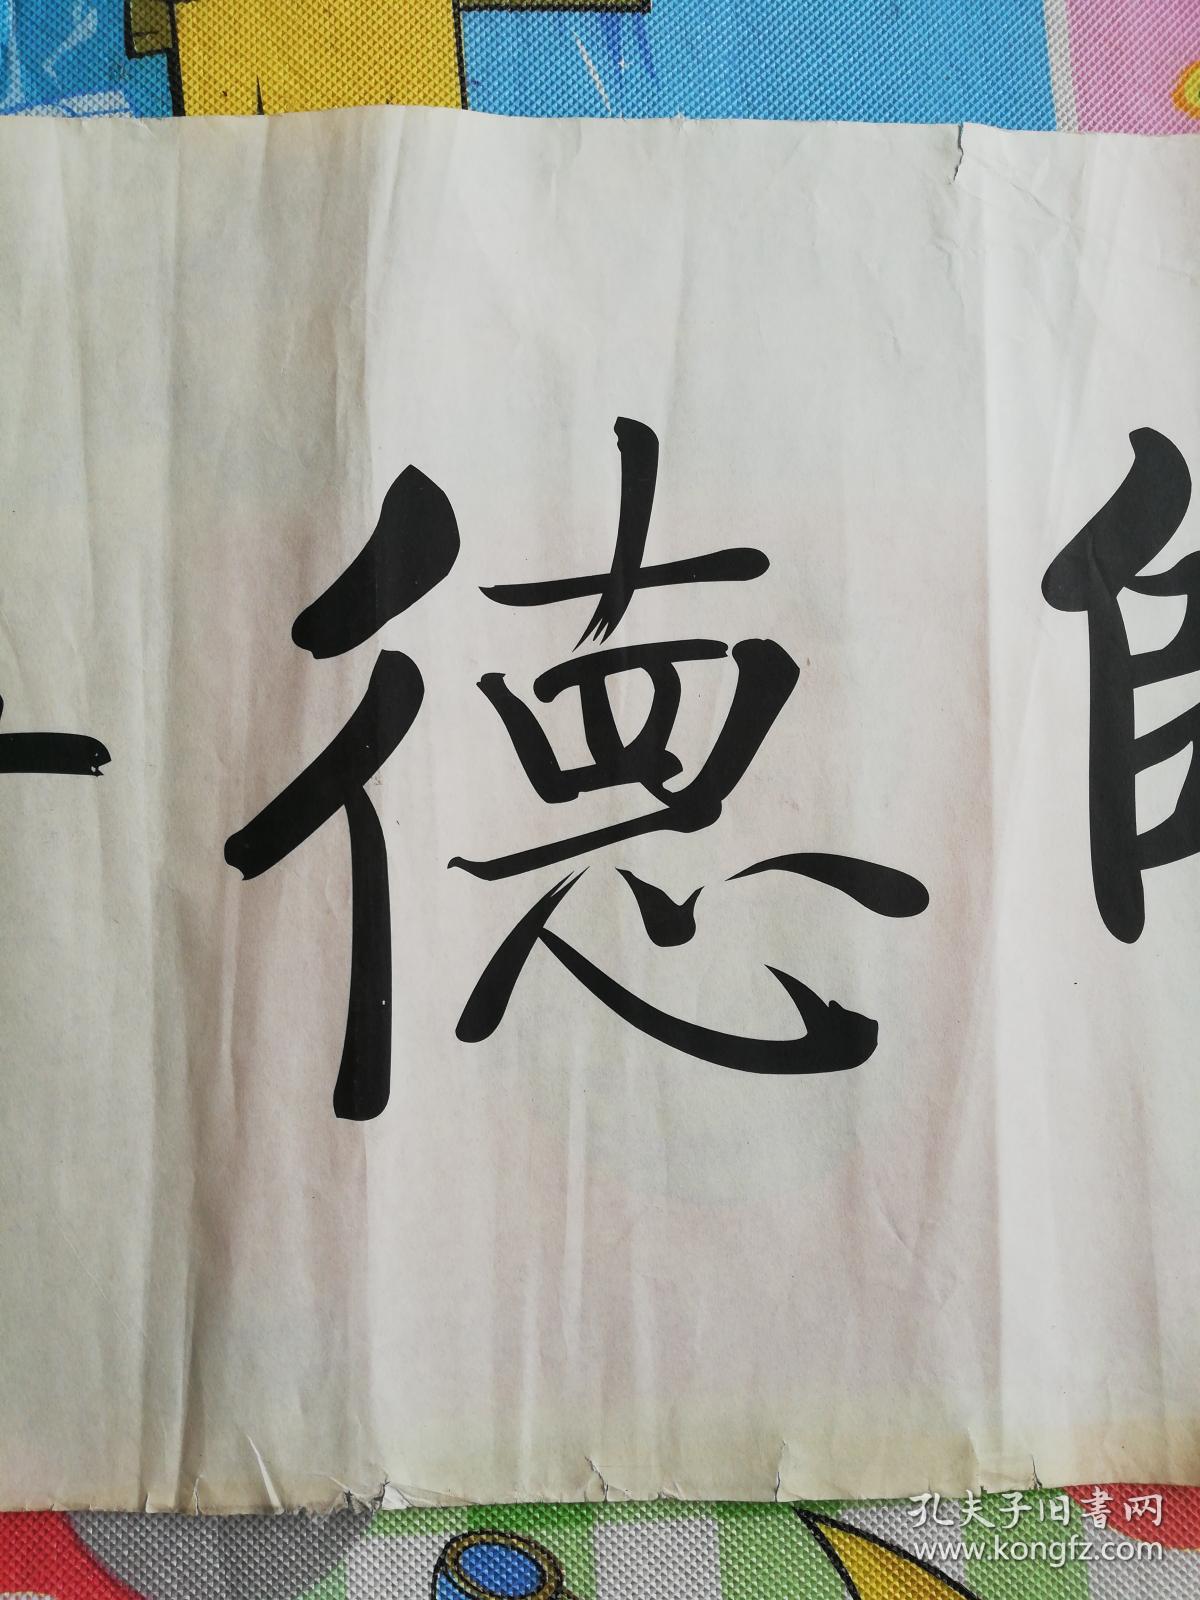 德
孔夫子旧書网
www.kongfz.com